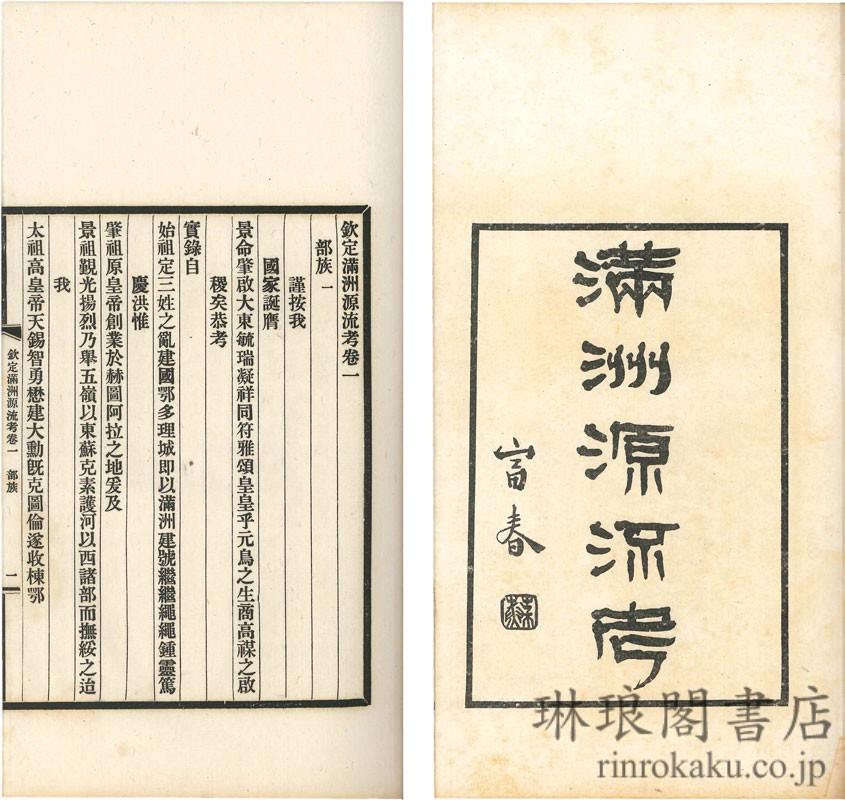 滿洲源流考
富春
欽定滿洲源流考卷一
部族一
謹按我
國家誕膺
景命肇啟大東毓瑞凝祥同符雅頌皇皇乎元鳥之生商高禖之啟
稷矣恭考
實錄自
始祖定三姓之亂建國鄂多理城即以滿洲建號繼繼繩繩鍾靈篤
慶洪惟
肇祖原皇帝創業於赫圖阿拉之地爰及
景祖覲光揚烈乃舉五嶺以東蘇克素護河以西諸部而撫綏之迨
我
太祖高皇帝天錫智勇懋建大勳旣克圖倫遂收棟鄂
欽定滿洲源流考卷一 部族 一
琳琅閣書店
rinrokaku.co.jp